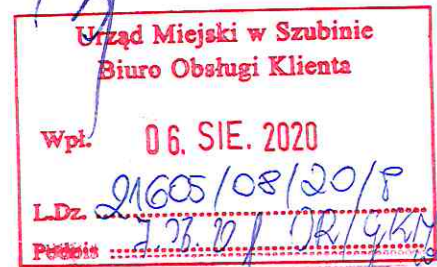 Urząd Miejski w Szubinie
Biuro Obsługi Klienta
Wpł. 06. SIE. 2020
L.Dz. 21605/08/20/P
Podpis